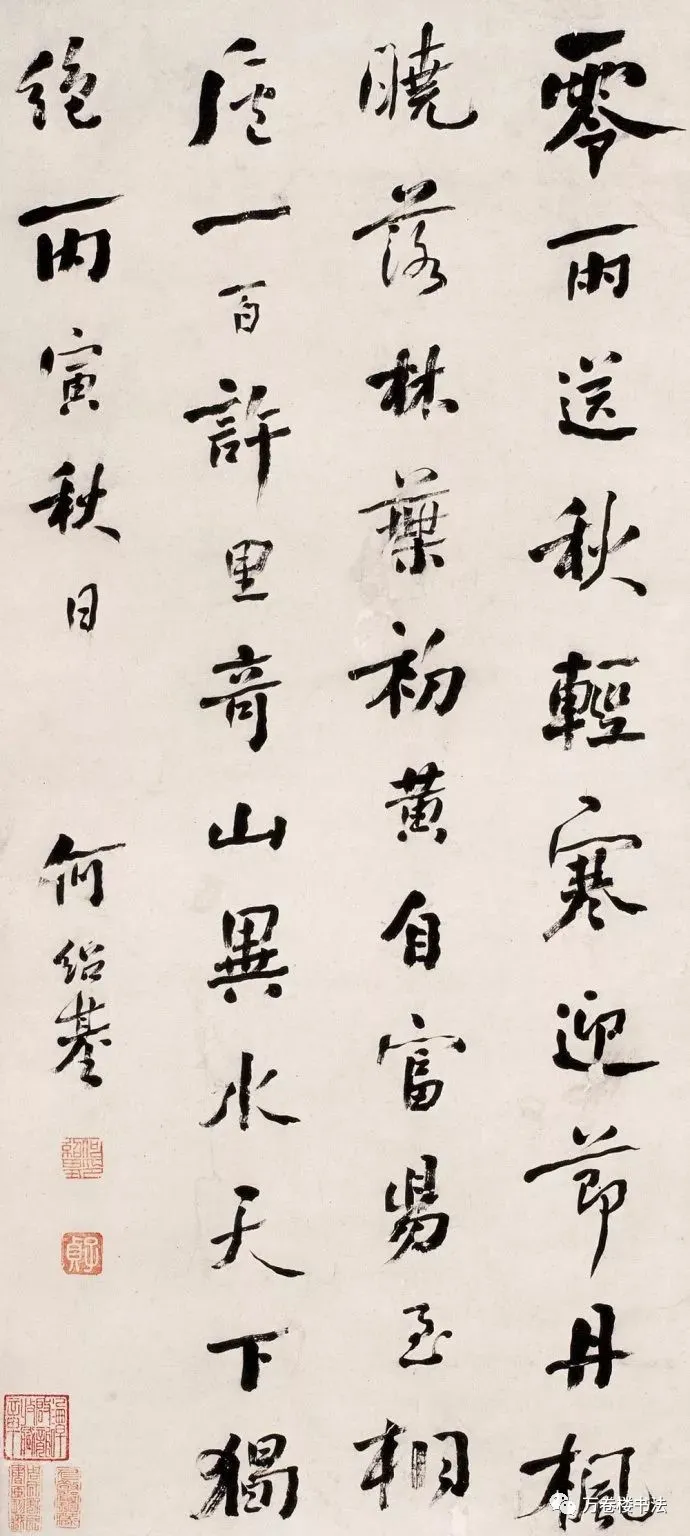 零雨送秋輕寒迎節丹楓
曉落林葉初黃自富昜至桐
廬一百許里奇山異水天下獨
絕丙寅秋日 何紹基
何紹基印
子貞
万卷楼书法